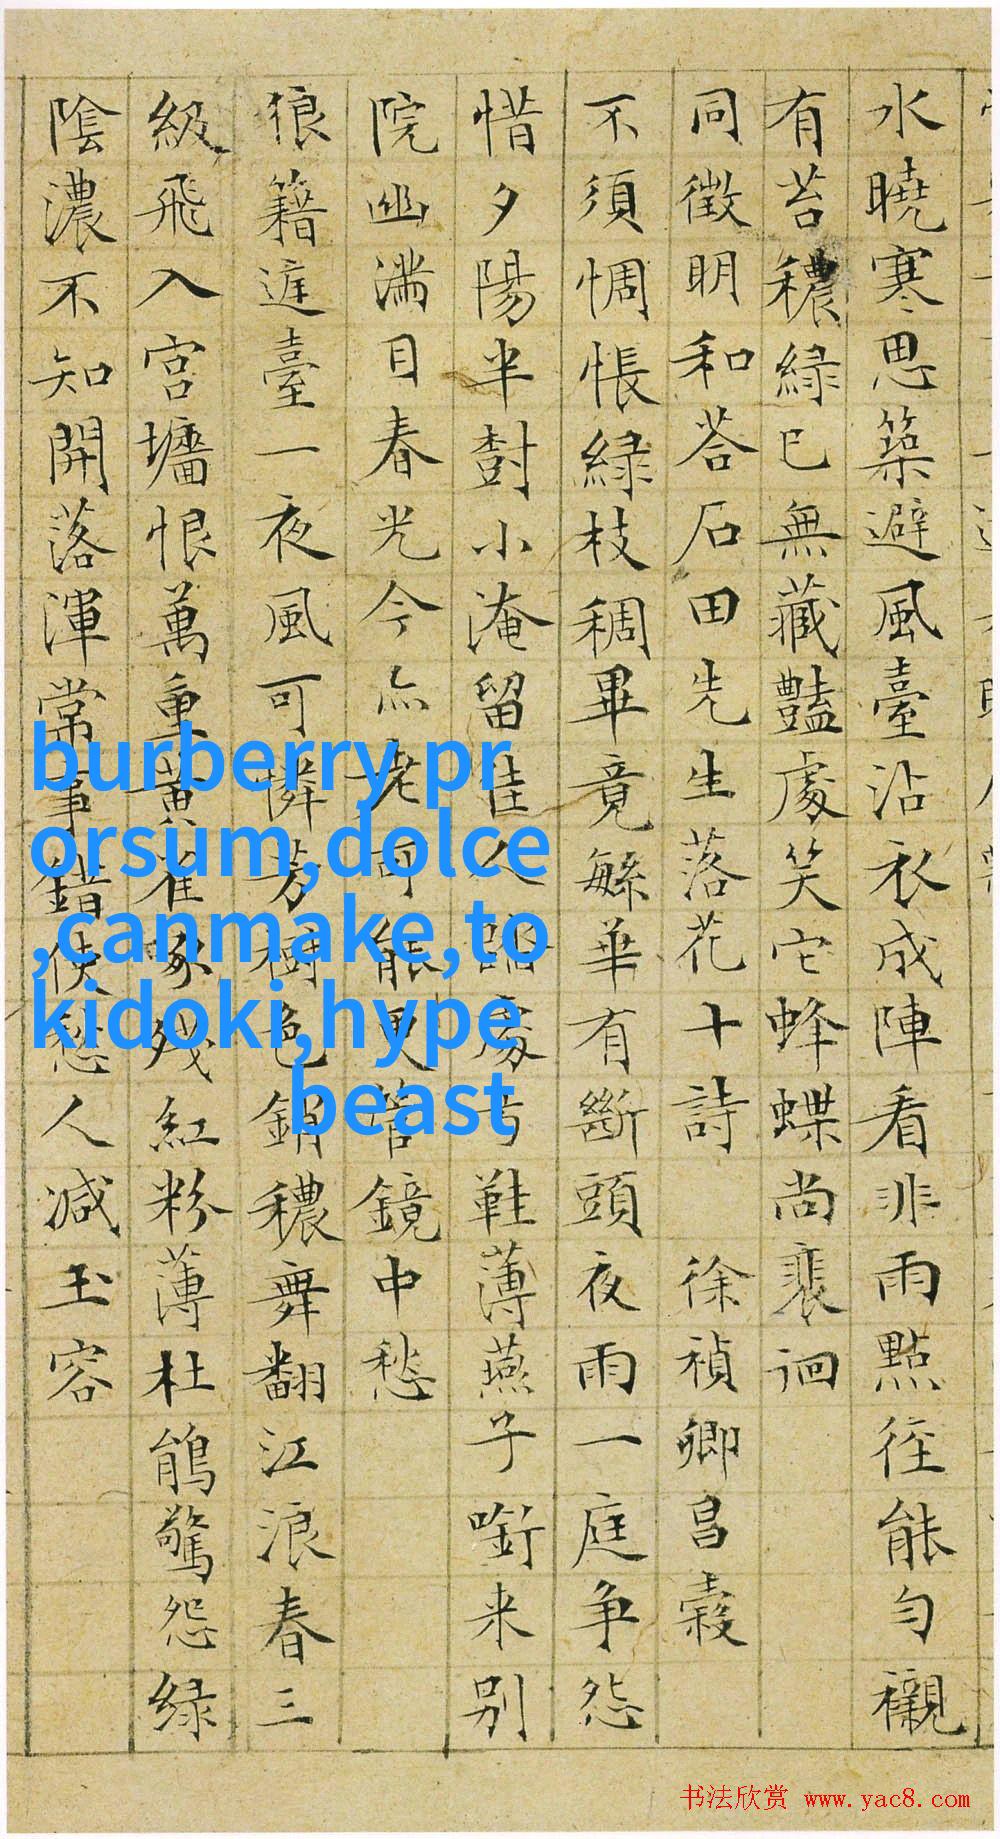 水曉寒思築避風臺沾衣成陣看非雨點徑能勻襯
有苔穠綠已無藏豔處笑它蜂蝶尚裴徊
同徵明和荅石田先生落花十詩 徐禎卿昌穀
不須惆悵綠枝稠畢竟緐華有斷頭夜雨一庭争怨
惜夕陽半樹小淹留佳人蹋處弓鞋薄燕子銜来别
院幽滿目春光今亦老可能更管鏡中愁
狼籍庭臺一夜風可憐芳樹色銷穠舞翻江浪春三
級飛入宮墻恨萬重黄雀啄殘紅粉薄杜鵑驚怨綠
陰濃不知開落渾常事錯使愁人減玉容
burberry pr
orsum,dolce
,canmake,to
kidoki,hype
beast
书法欣赏 www.yac8.com